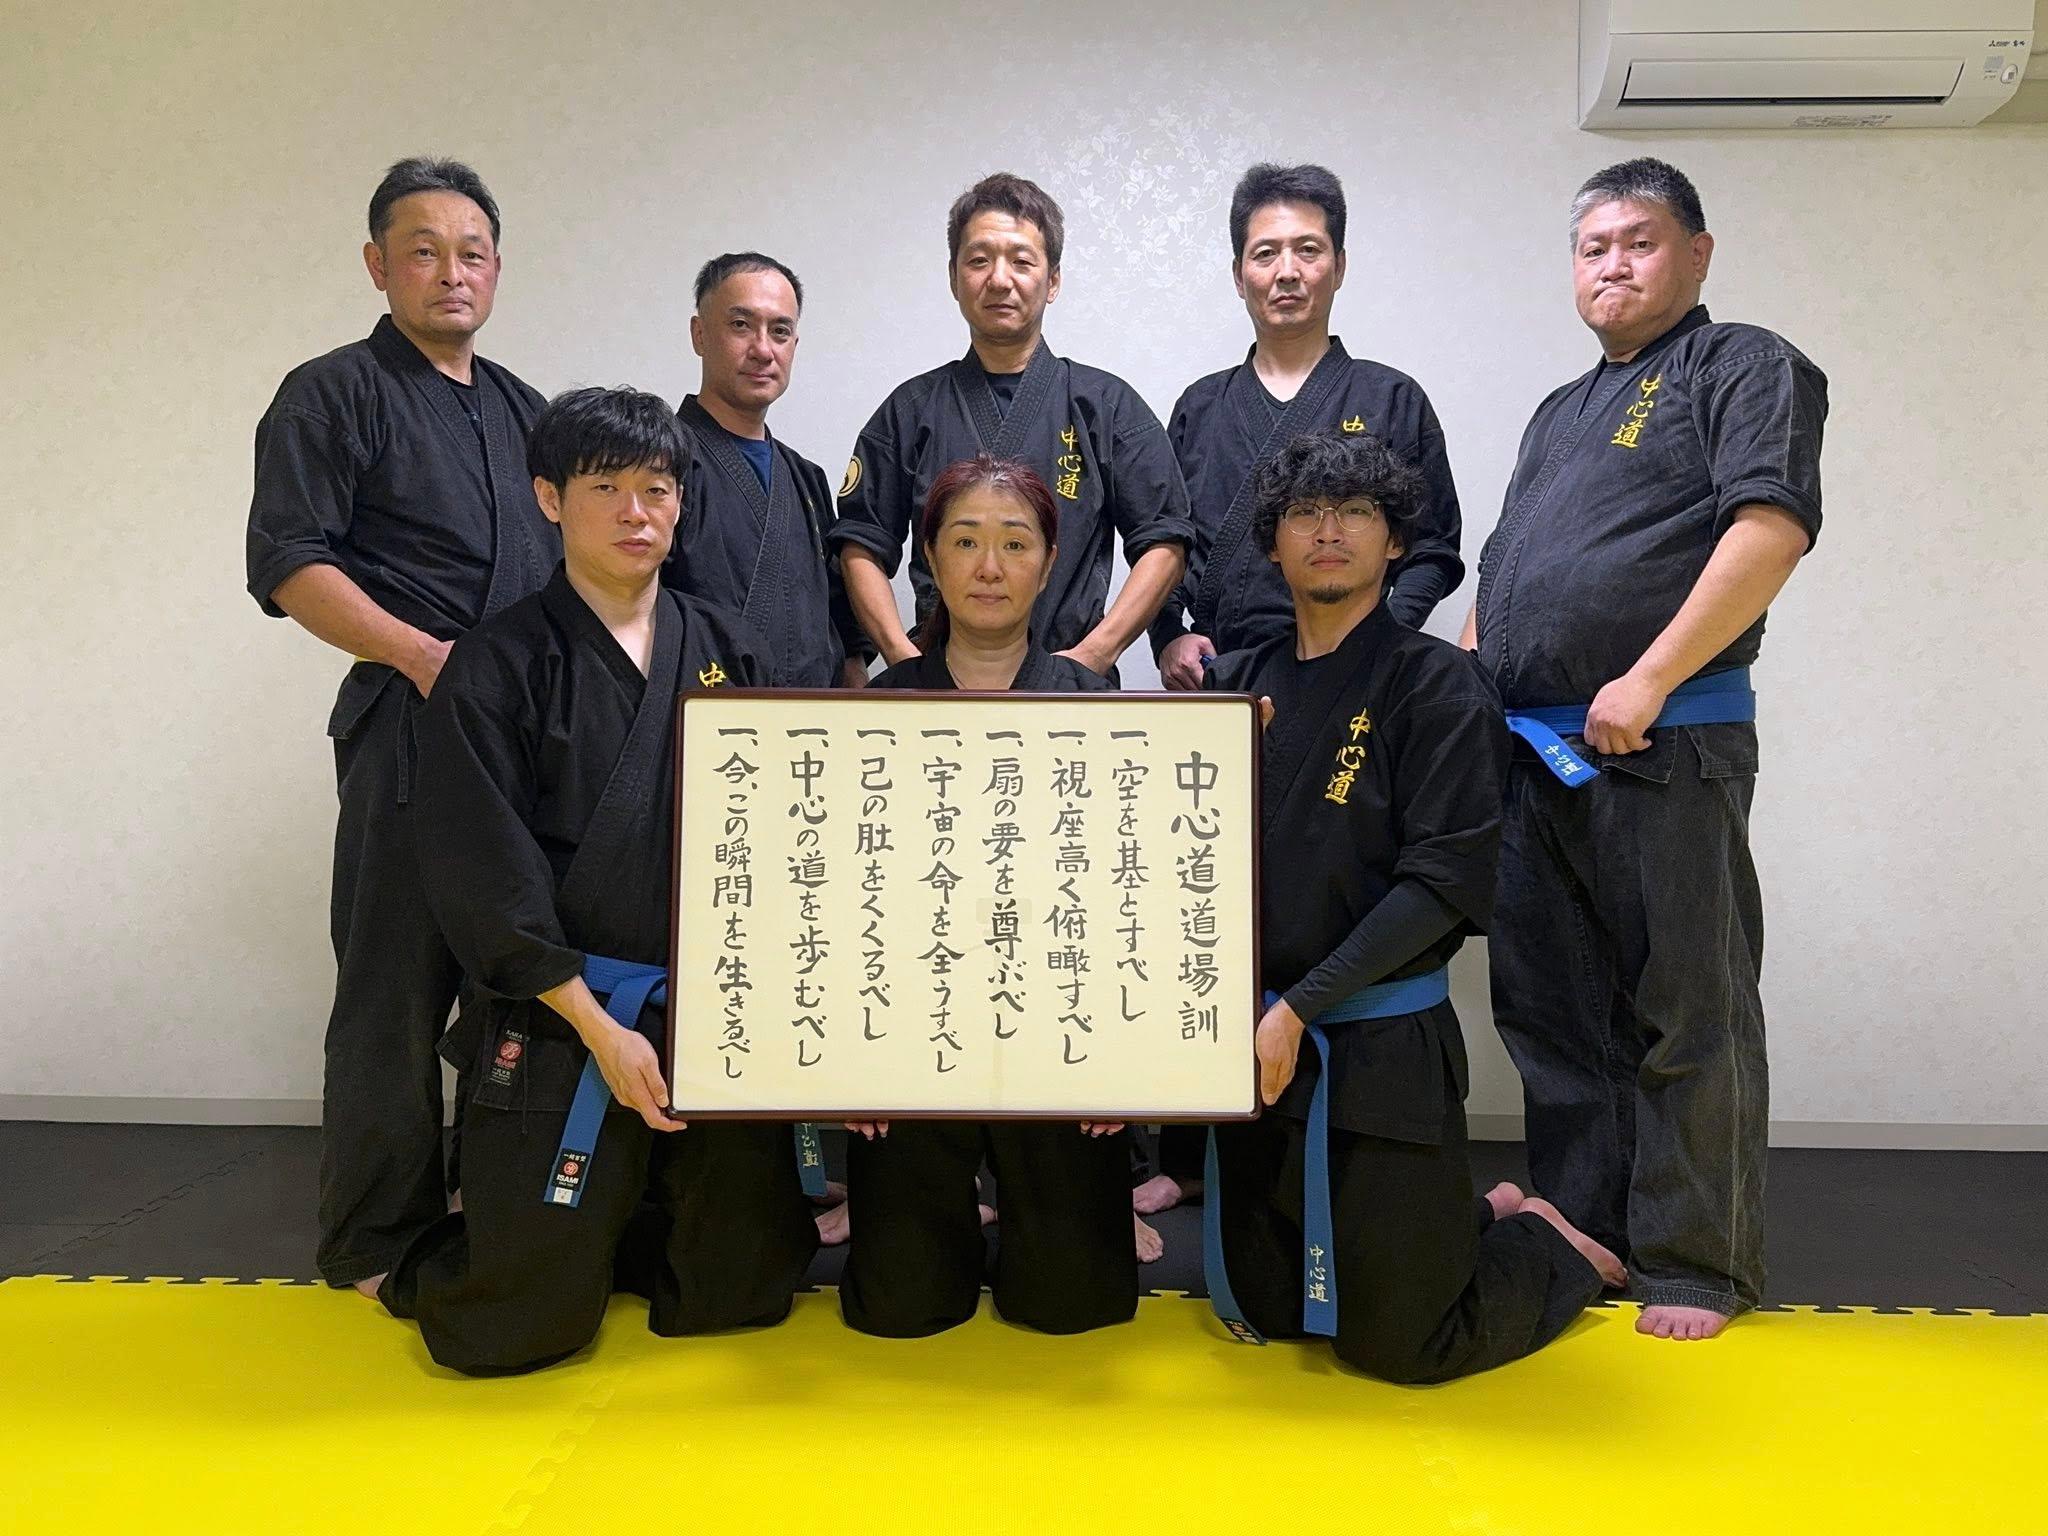 中心道道場訓
一、空を基とすべし
一、視座高く俯瞰すべし
一、扇の要を尊ぶべし
一、宇宙の命を全うすべし
一、己の肚をくくるべし
一、中心の道を歩むべし
一、今、この瞬間を生きるべし
中心道
中
中心道
中
中心道
中心道
中心道
ISAMI
ISAMI